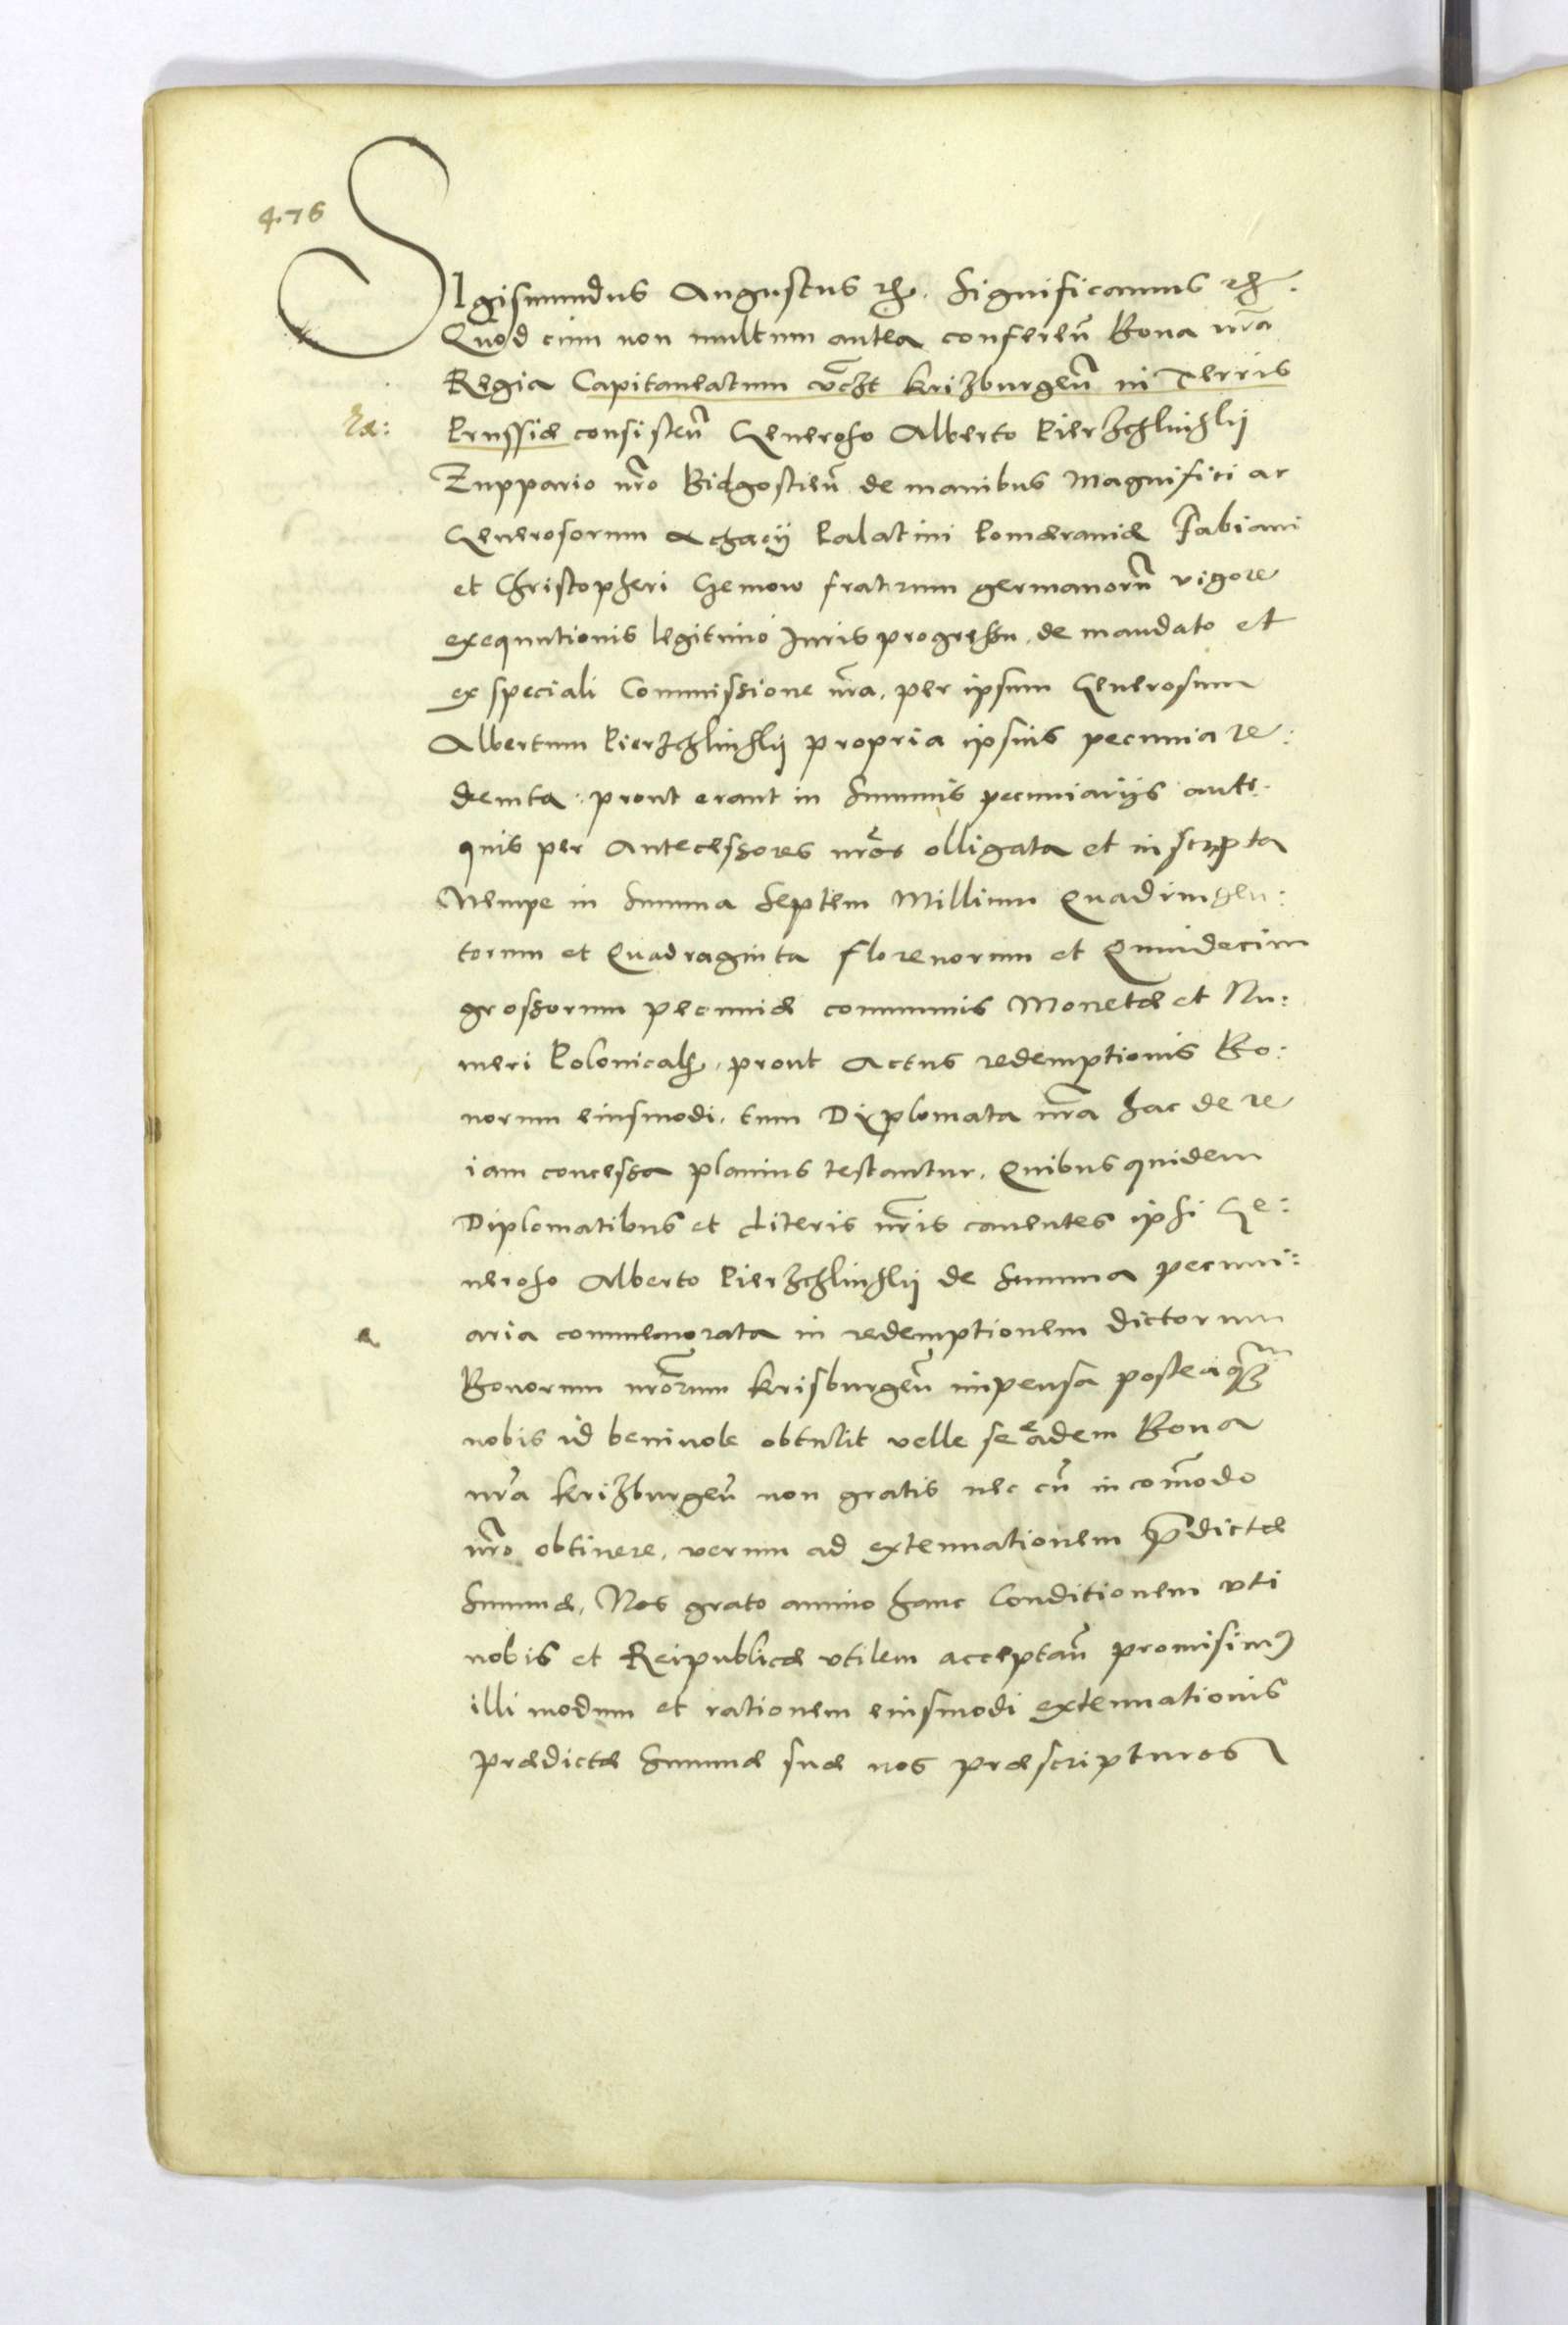 476
SIgismundus Augustus etc. Significamus etc.
Quod cum non multum antea conferen̄ Bona nr̄a
Regia Capitaneatum vc̄zt Krizburgen̄ in Terris
Prussiæ consisten̄ Generoso Alberto Pierzchlinskij
Zuppario nr̄o Bidgostien̄ de manibus Magnifici ac
Generosorum Achacij Palatini Pomeraniæ Fabiani
et Christopheri Czemow fratrum germanorū vigore
exequutionis legitimo Iuris progressu, de mandato et
ex speciali Commissione nr̄a, per ipsum Generosum
Albertum Pierzchlinskij propria ipsius pecunia re:
demta: prout erant in Summis pecuniarijs anti:
quis per Antecessores nr̄os obligata et inscripta
Nempe in Summa Septem Millium Quadringen:
torum et Quadraginta florenorum et Quindecim
grossorum pecuniæ communis Monetæ et Nu:
meri Polonicalis, prout Actus redemptionis Bo:
norum eiusmodi, tum Diplomata nr̄a hac de re
iam concessa planius testantur. Quibus quidem
Diplomatibus et Literis nr̄is cauentes ipsi Ge:
neroso Alberto Pierzchlinskij de Summa pecuni:
aria commemorata in redemptionem dictorum
Bonorum nr̄orum Krisburgen̄ impensa posteaq̄m
nobis id beniuole obtulit velle se eadem Bona
nr̄a Krizburgen̄ non gratis nec cū incom̄odo
nr̄o obtinere, verum ad extenuationem p̄dictæ
Summæ, Nos grato animo hanc Conditionem vti
nobis et Reipublicæ vtilem acceptan̄ promisimus
illi modum et rationem eiusmodi extenuationis
prædictæ Summæ suæ nos præscripturos